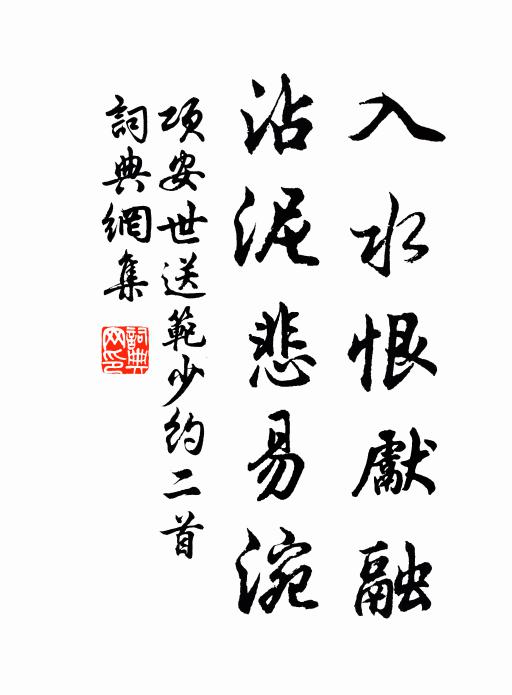 入水恨獻融
沾泥悲易涴
項安世送範少約二首
詞典網集
詞典網印